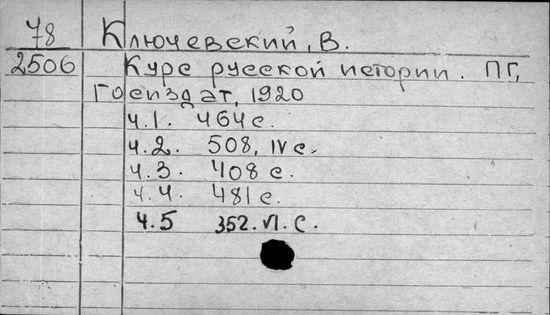 78 Ключевский, В.
2506 Курс русской истории. ПГ,
Госиздат, 1920
ч.1. 464 с.
ч.2. 508, IV с.
ч.3. 408 с.
ч.4. 481 с.
ч.5 352. VI. С.